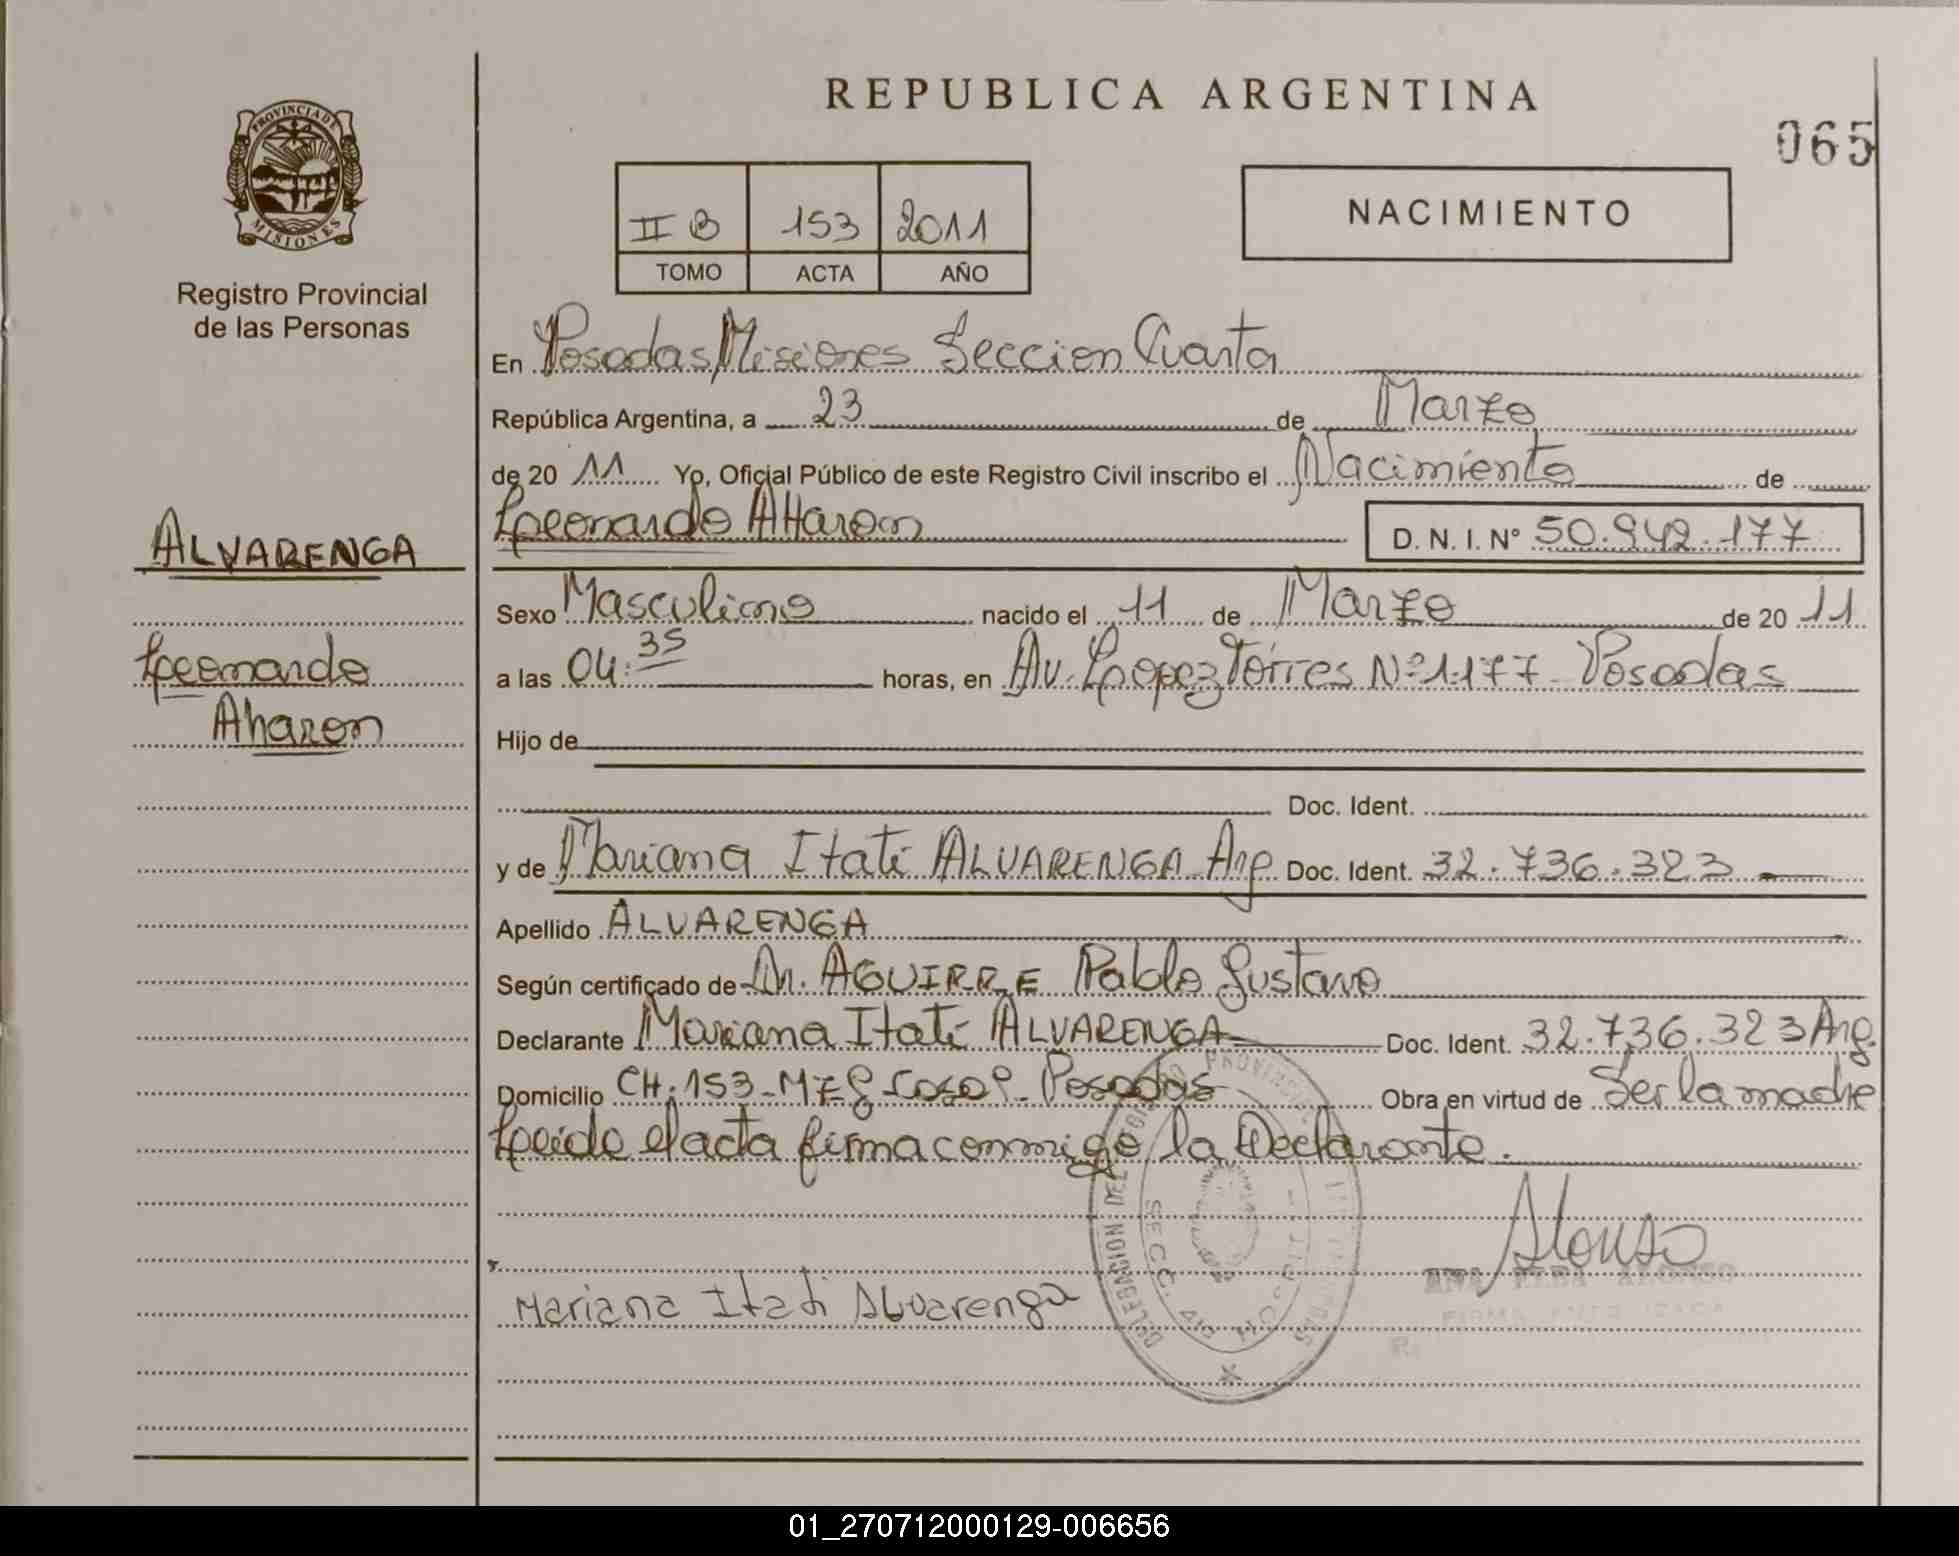 REPUBLICA ARGENTINA
065
PROVINCIA DE
MISIONES
Registro Provincial
de las Personas
II B 153 2011
TOMO ACTA AÑO
NACIMIENTO
En Posadas, Misiones Seccion Cuarta
República Argentina, a 23 de Marzo
de 20 11 Yo, Oficial Público de este Registro Civil inscribo el Nacimiento de
Leonardo AHaron D. N. I. N° 50.942.177
ALVARENGA
Leonardo
Aharon
Sexo Masculino nacido el 11 de Marzo de 20 11
a las 04:35 horas, en Av. Lopez Torres Nº 1.177 - Posadas
Hijo de
Doc. Ident.
y de Mariana Itatí ALVARENGA Arg. Doc. Ident. 32.736.323
Apellido ALVARENGA
Según certificado de Dr. AGUIRRE Pablo Gustavo
Declarante Mariana Itatí ALVARENGA Doc. Ident. 32.736.323 Arg.
Domicilio CH: 153 - Posadas Obra en virtud de Ser la madre
Leído el acta firma conmigo la Declarante.
Alonso
ALONSO
Mariana Itati Alvarenga
DELEGACION DEL
SECC. 4ta
01_270712000129-006656